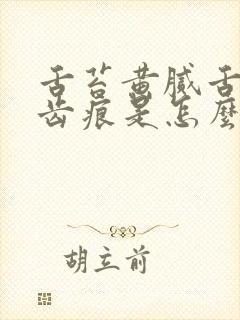 舌苔黄腻舌
齿痕是怎麼
胡立前